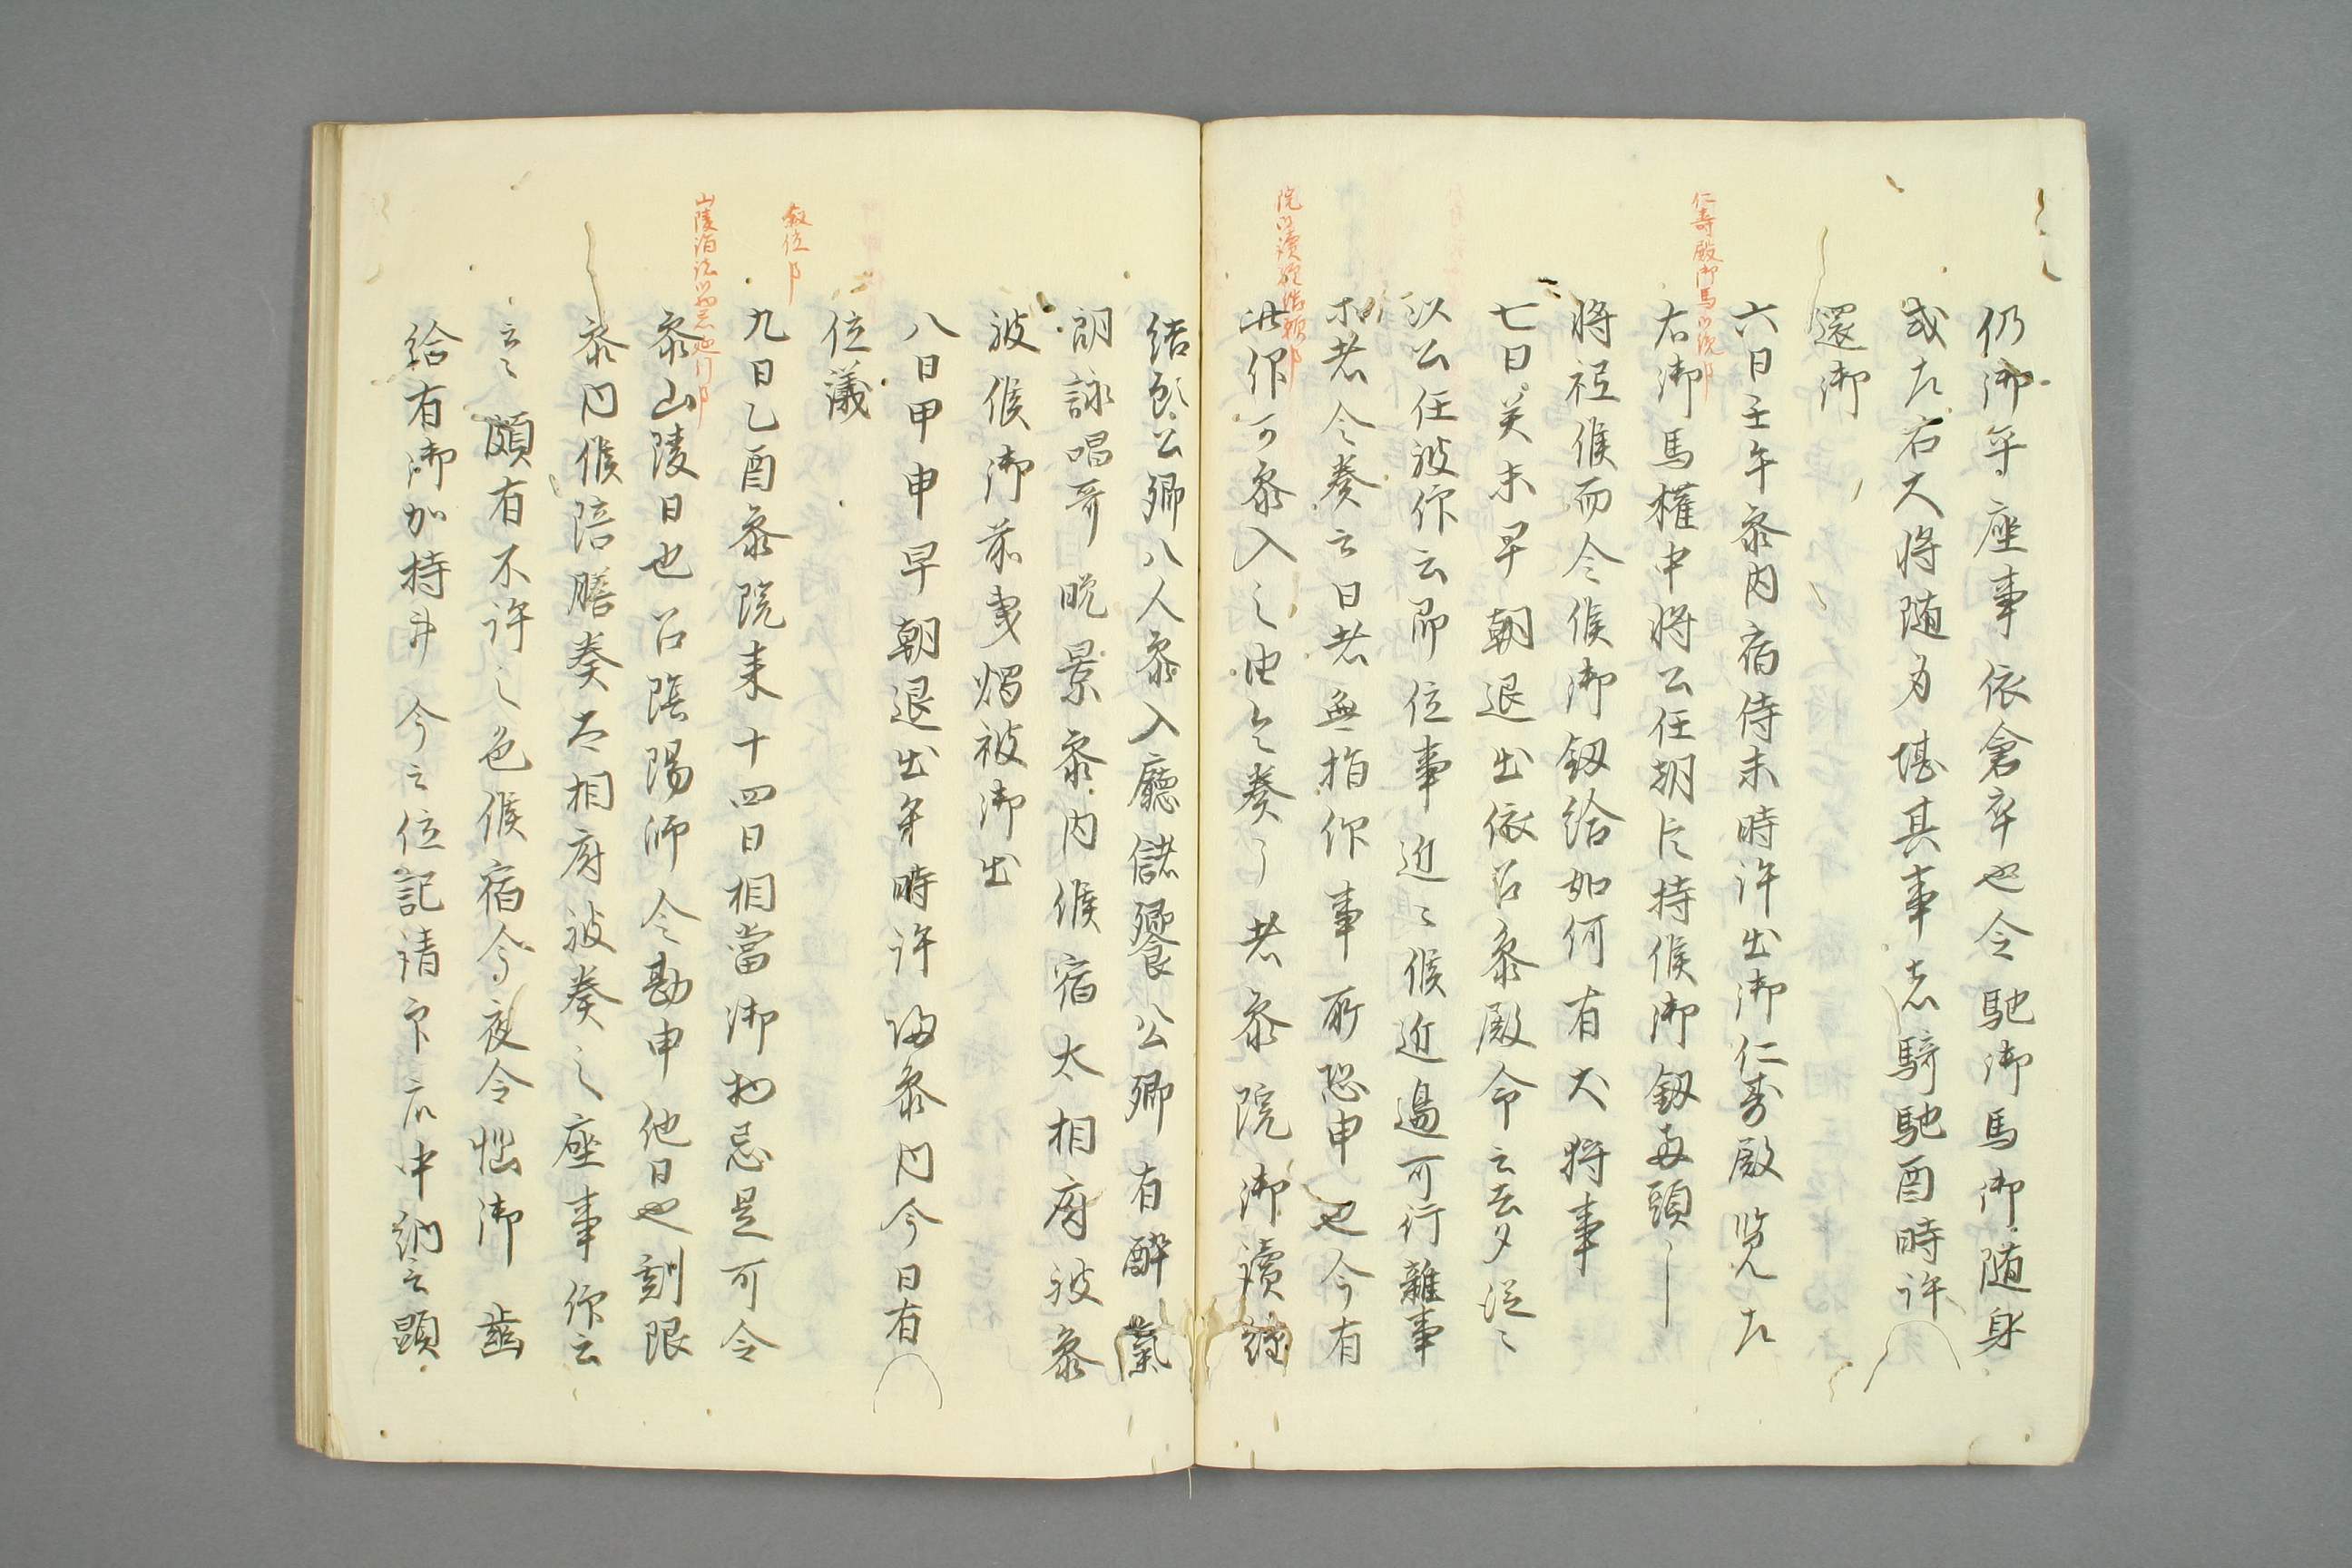 仍御平座事依倉卒也令馳御馬御随身
或左右大将随身堪其事者騎馳酉時許
還御
仁寿殿御馬御覧
六日壬午参内宿侍未時許出御仁寿殿覧左
右御馬権中将公任朝臣持候御釼
将祗候而令候御釼給如何有大将事
七日癸未早朝退出依召参殿命云去夕
以公任被仰云即位事近々候近邉可行雜事
者令奏云日者無指仰事所恐申也今有
院御讀経結願
此仰可参入之由令奏了者参院御讀経
結願公卿八人参入廳儲饗公卿有酔氣
朗詠唱哥晩景参内候宿太相府被参
被候御前秉燭被御出
八日甲申早朝退出午時許歸参内今日有
位議
叙位
九日乙酉参院来十四日相當御物忌是可令
山陵
参山陵日也召陰陽師令勘申他日也刻限
参内候陪膳奏太相府被奏之座事仰云
云々頗有不許之色候宿今夜令惱御齒
給有御加持并今云位記請印左中納言顕